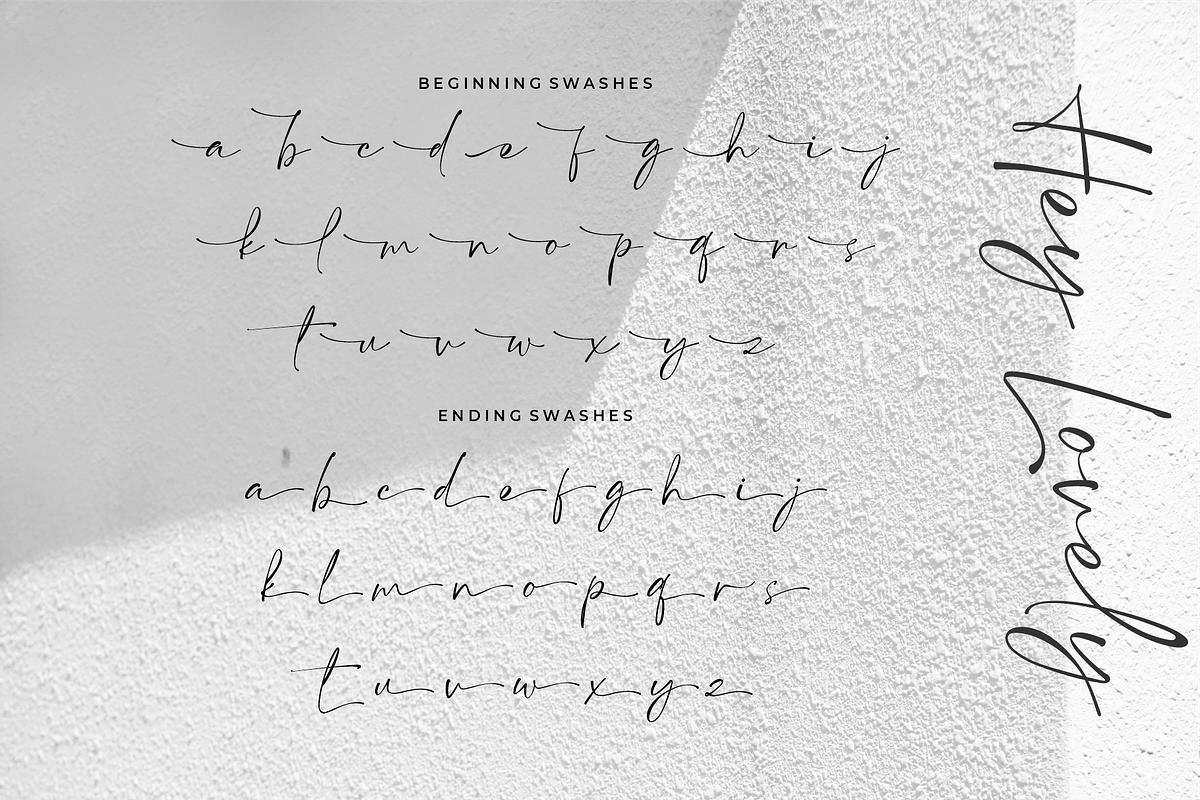 BEGINNING SWASHES
a b c d e f g h i j
k l m n o p q r s
t u v w x y z
ENDING SWASHES
a b c d e f g h i j
k l m n o p q r s
t u v w x y z
Hey Lovely